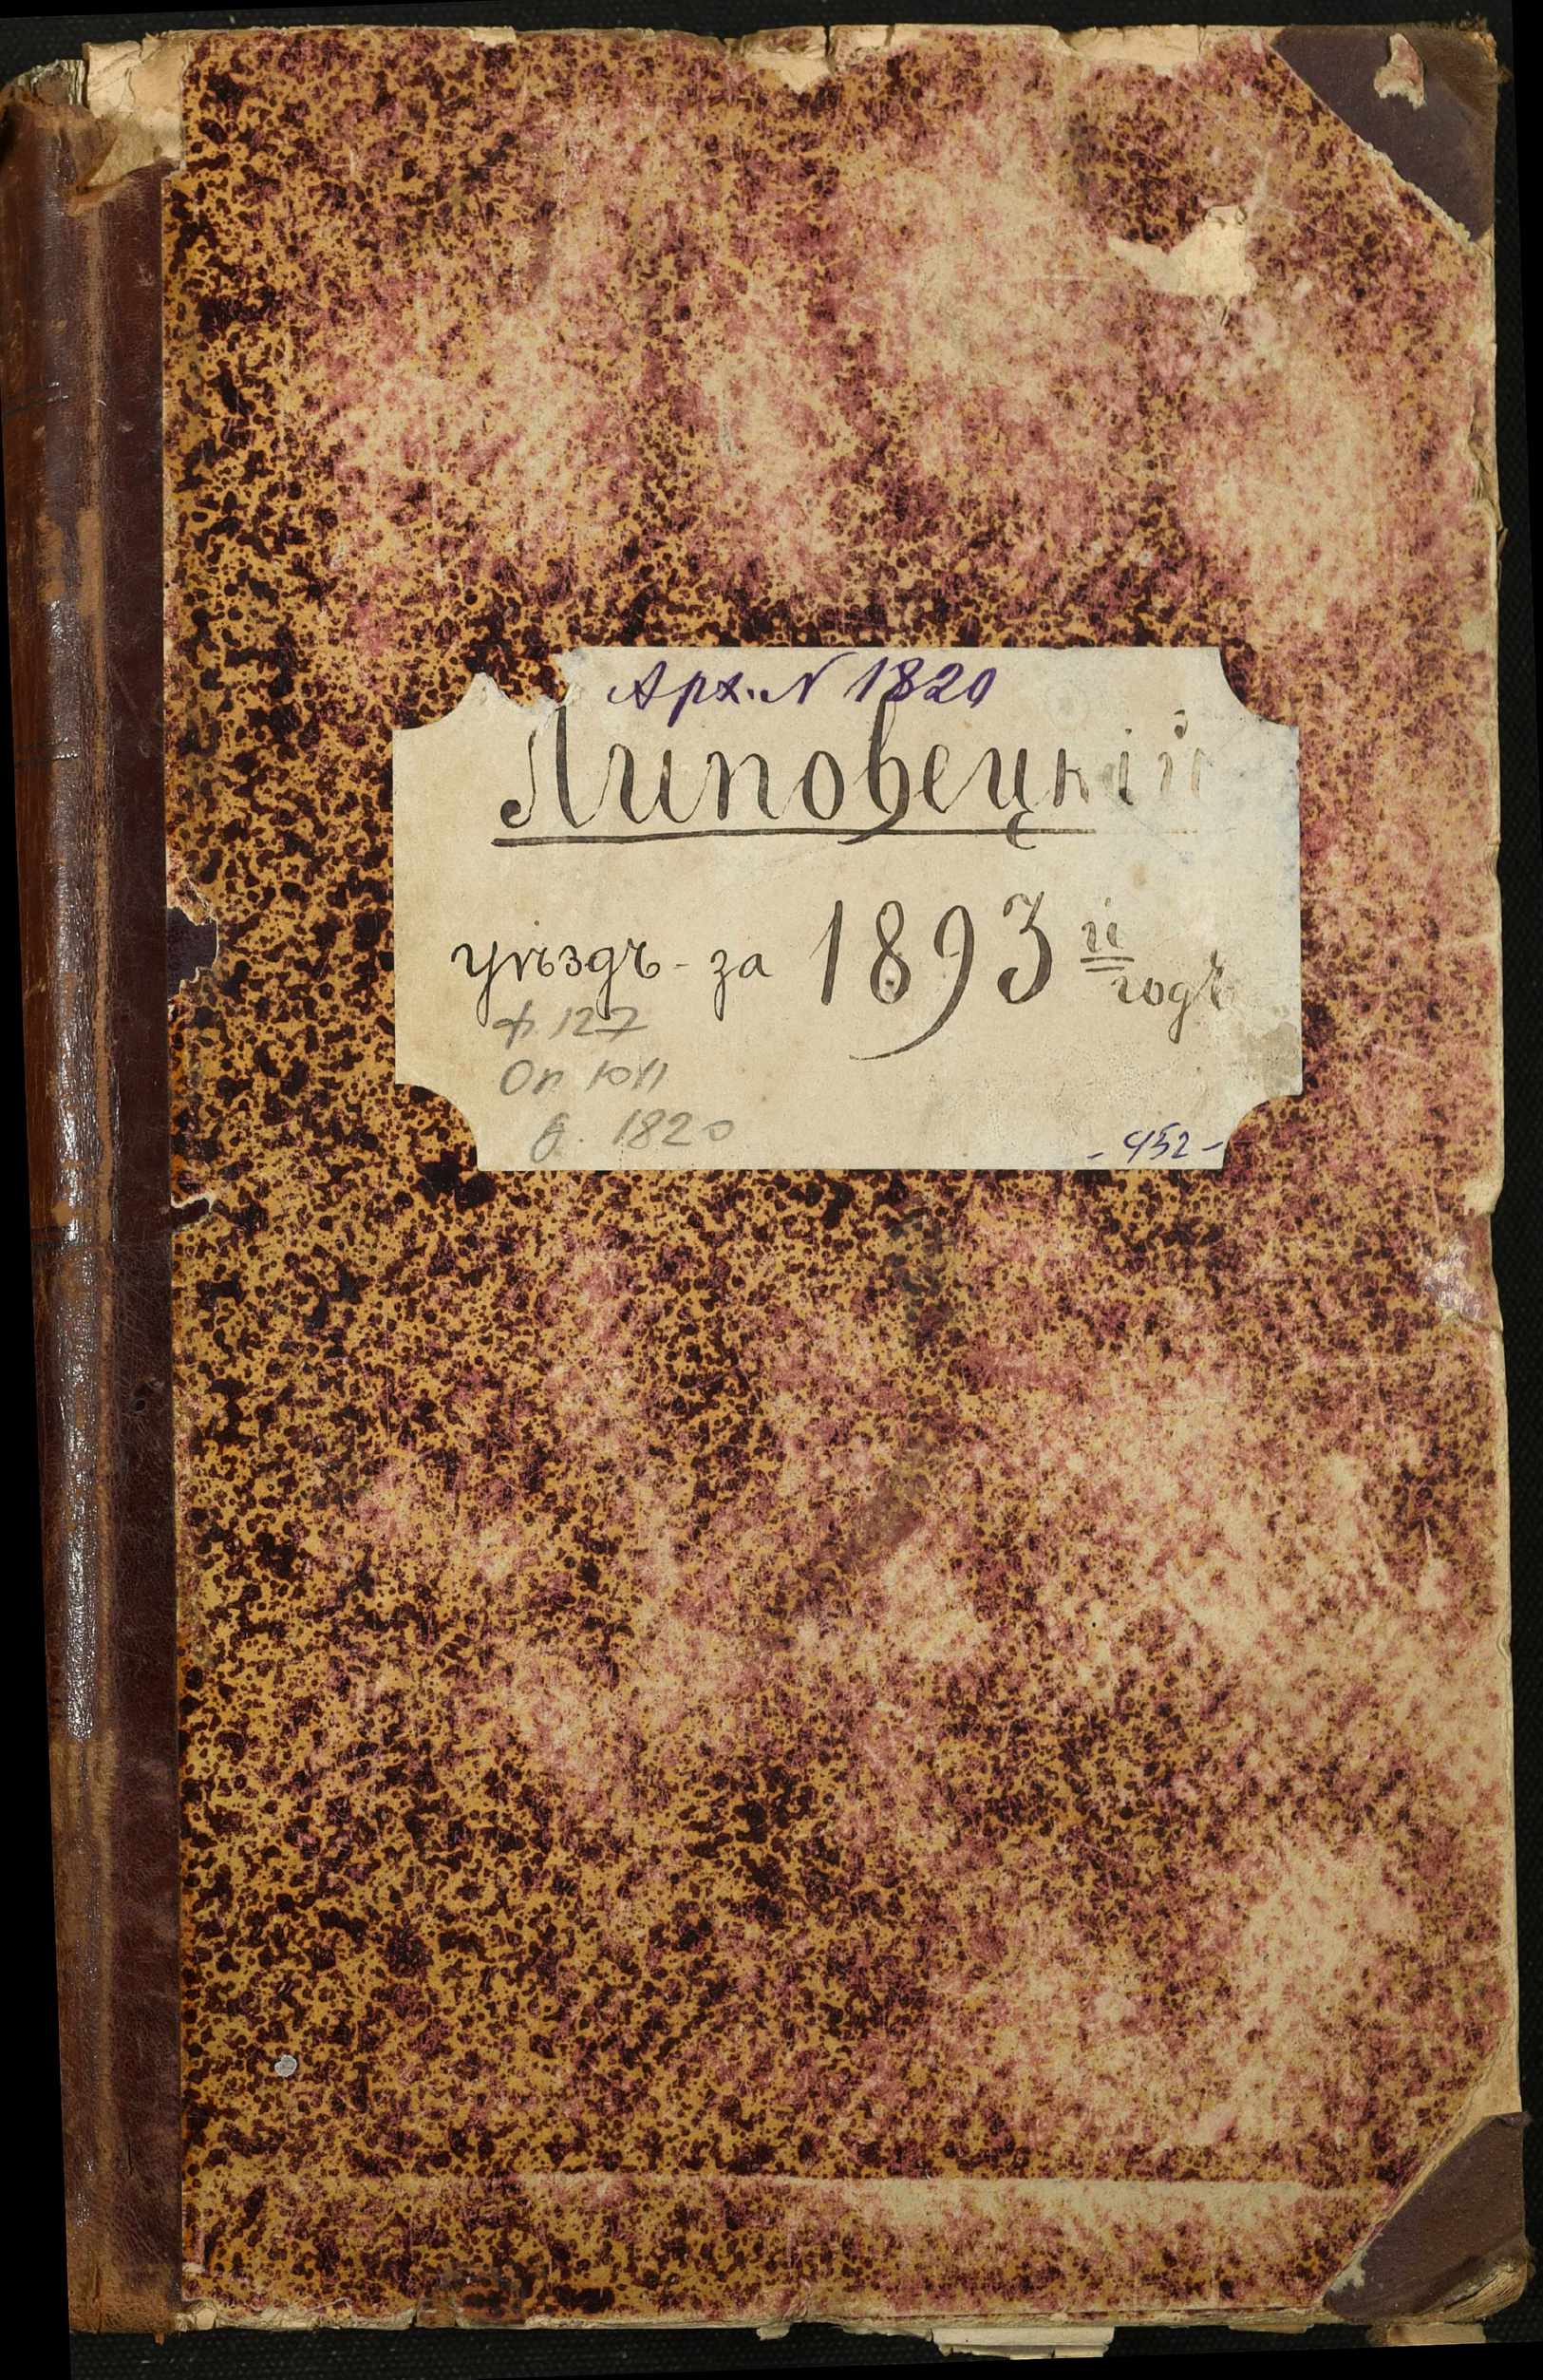 Арх. N 1820
Липовецкій
уѣздъ - за 1893й годъ
ф. 127
Оп 1011
д. 1820
- 452 -